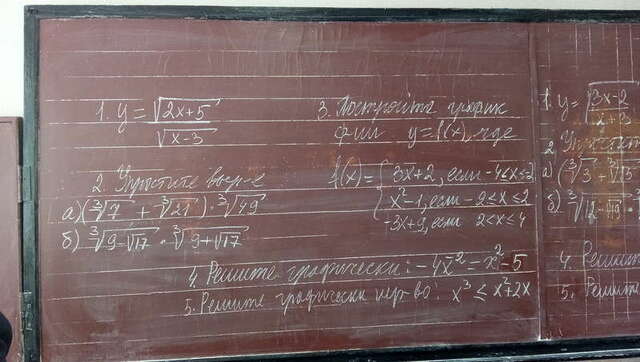 1. y = √(2x+5) / √(x-3)
2. Упростите выр-е
а) (∛7 + ∛21) · ∛49
б) ∛(9-√17) · ∛(9+√17)
3. Постройте график
ф-ии y = f(x), где
f(x) = { 3x+2, если -4≤x≤-2
x²-1, если -2≤x≤2
-3x+9, если 2<x≤4
4. Решите графически: -4x⁻² = x²-5
5. Решите графически нер-во: x³ ≤ x²+2x
1. y = √(3x-2
x+3
2. Упростит
а) (∛3 + ∛15
б) ∛12-
4. Решит
5. Решите